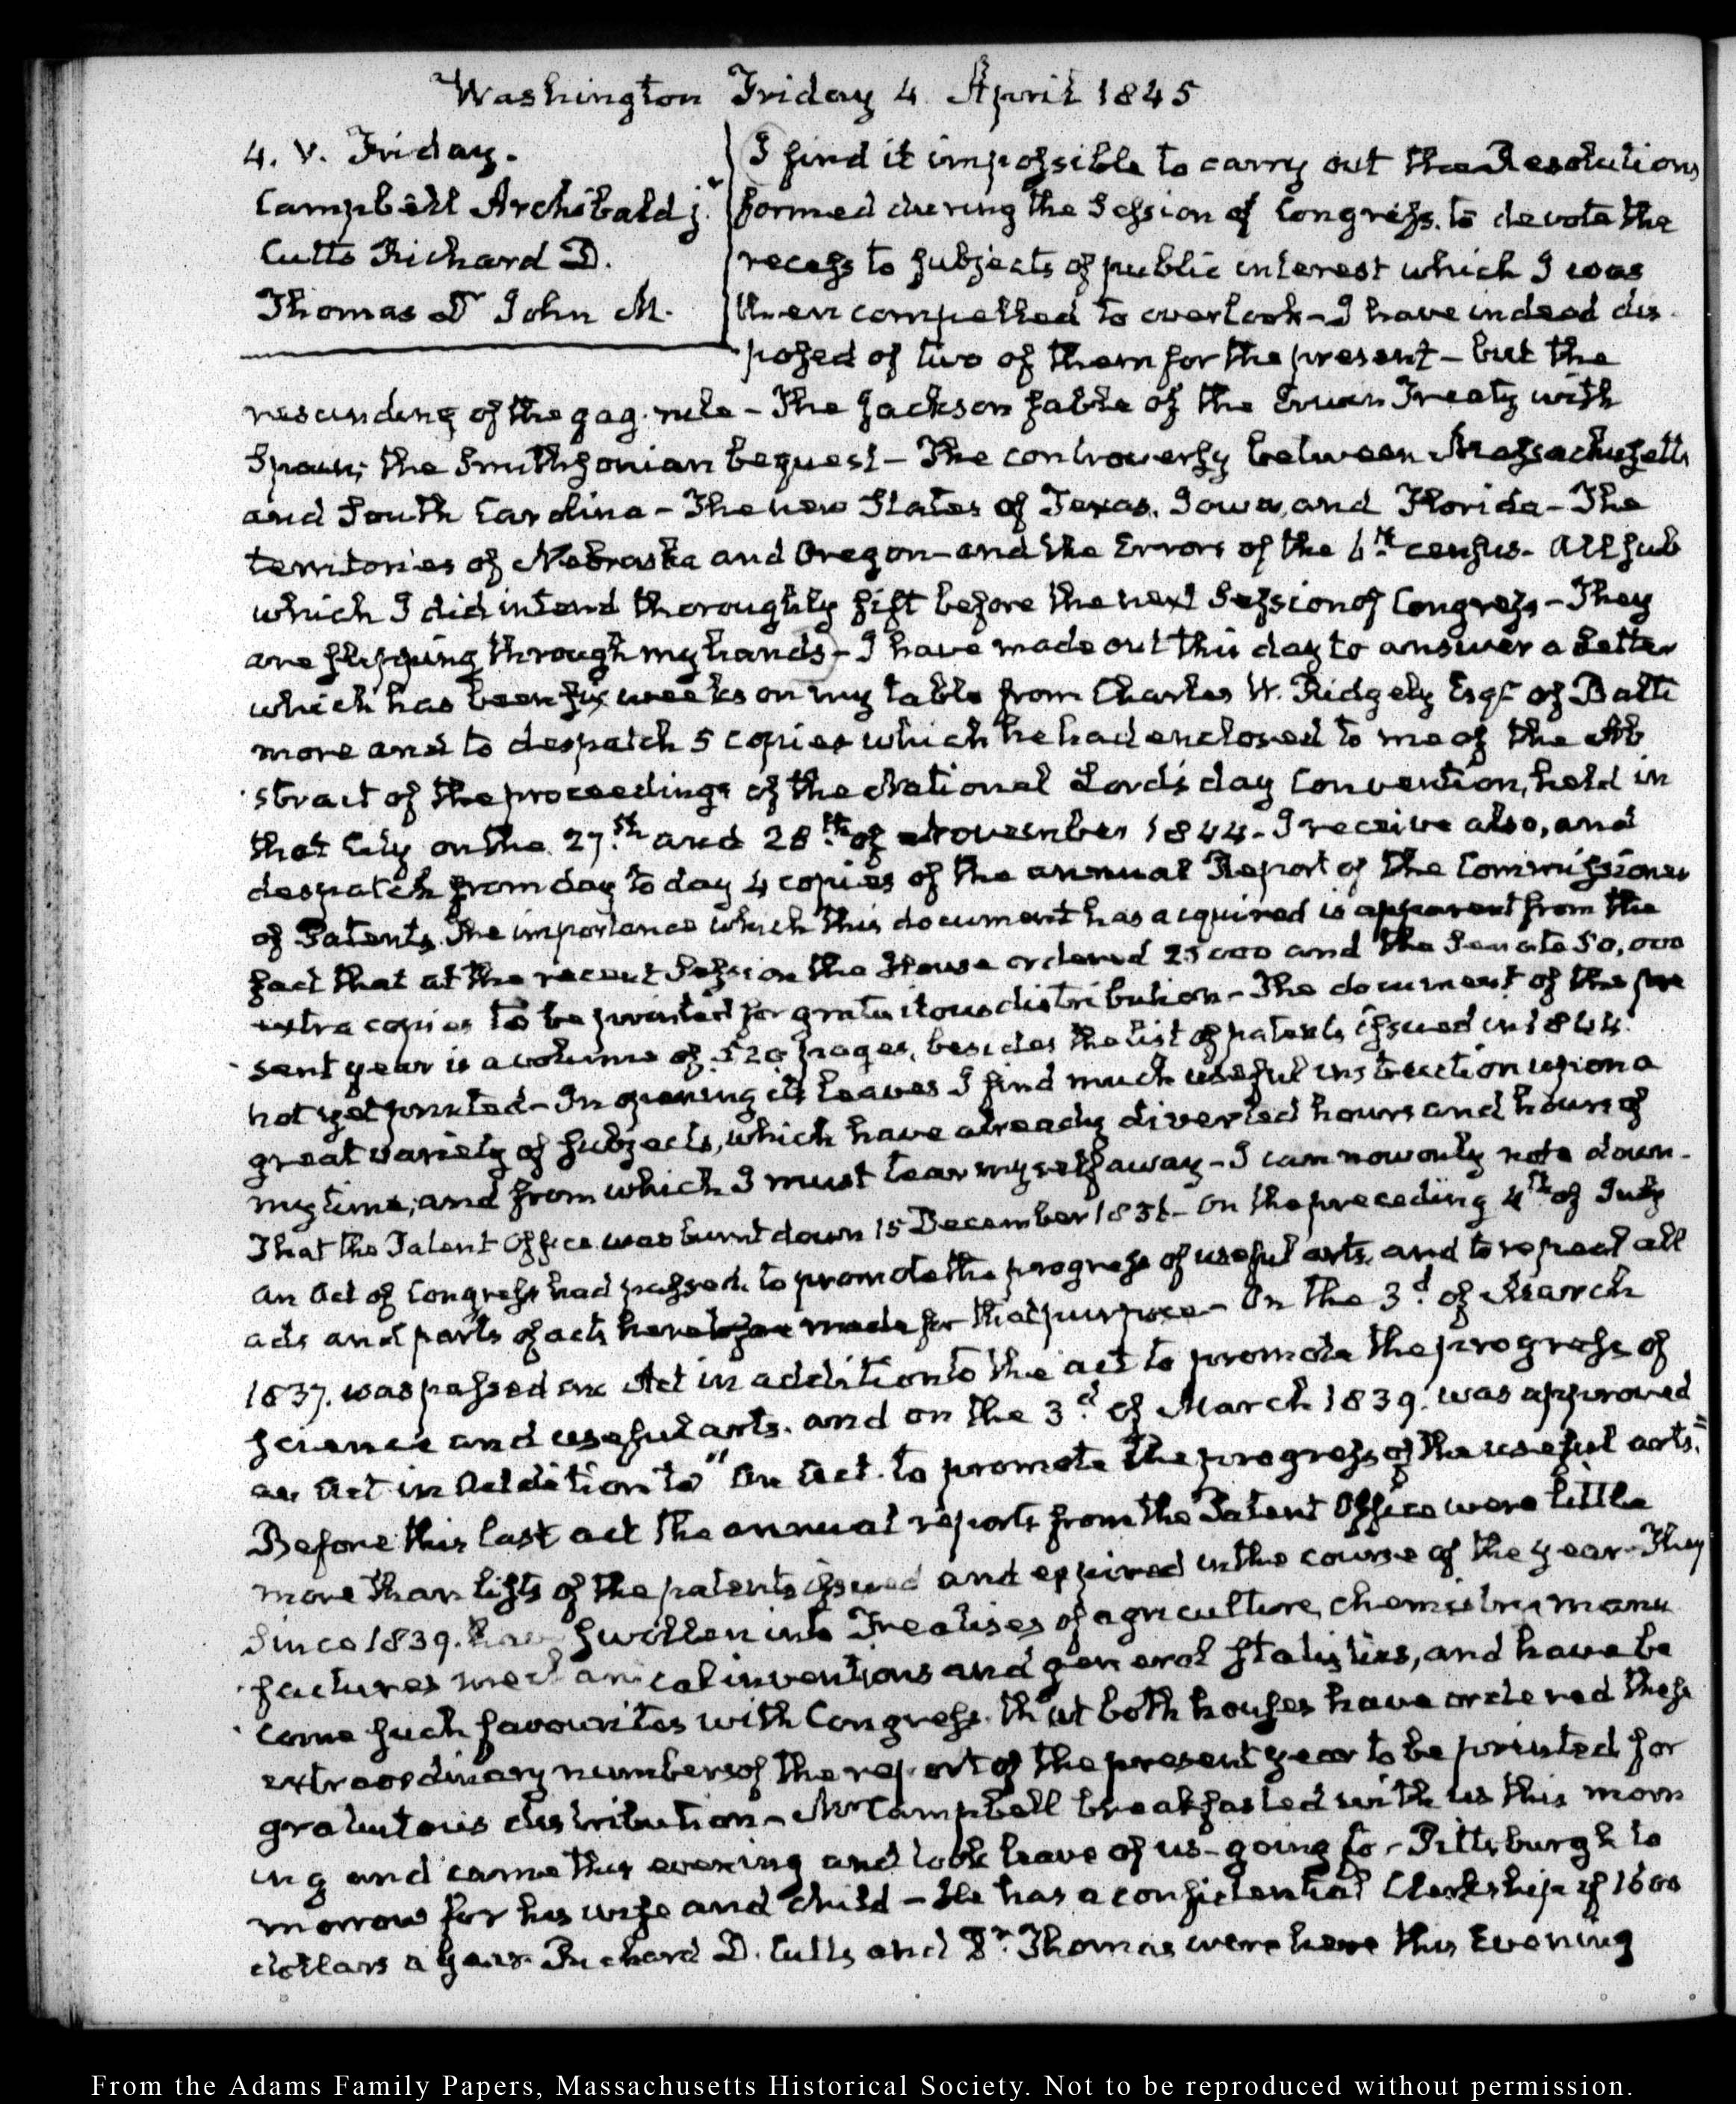 Washington Friday 4 April 1845
4. V. Friday.
Campbell Archibald jr
Cutts Richard D.
Thomas Dr John M.
I find it impossible to carry out the Resolutions
formed during the Session of Congress, to devote the
recess to subjects of public interest which I was
then compelled to overlook - I have indeed dis-
posed of two of them for the present - but the
rescinding of the gag-rule - The Jackson fable of the Treaty with
Spain, the Smithsonian bequest - The controversy between Massachusetts
and South Carolina - The new States of Texas, Iowa, and Florida - The
territories of Nebraska and Oregon - and the Errors of the 6th census. All sub
which I did intend thoroughly sift before the next Session of Congress - They
are slipping through my hands - I have made out this day to answer a Letter
which has been six weeks on my table from Charles W. Ridgely Esqr of Balti
more and to despatch 5 copies which he had enclosed to me of the Ab
stract of the proceedings of the National Lord's day Convention, held in
that City on the 27th and 28th of November 1844 - I receive also, and
despatch from day to day 4 copies of the annual Report of the Commissioner
of Patents. The importance which this document has acquired is apparent from the
fact that at the recent Session the House ordered 25000 and the Senate 50,000
extra copies to be printed for gratuitous distribution - The document of the pre
sent year is a volume of 520 pages, besides the list of patents issued in 1844.
not yet printed - In opening its leaves I find much useful instruction upon a
great variety of subjects, which have already diverted hours and hours of
my time, and from which I must tear myself away - I can now only note down -
That the Patent Office was burnt down 15 December 1836 - On the preceding 4th of July
an Act of Congress had passed to promote the progress of useful arts, and to repeal all
acts and parts of acts heretofore made for that purpose - On the 3d of March
1837. was passed an Act in addition to the act to promote the progress of
Science and useful arts. and on the 3d of March 1839. was approved
an Act in Addition to "An Act to promote the progress of the useful arts."
Before this last act the annual reports from the Patent Office were little
more than lists of the patents issued and expired in the course of the year - They
since 1839. have swollen into Treatises of agriculture, chemistry manu
factures mechanical inventions and general statistics, and have be
come such favourites with Congress, that both houses have ordered these
extraordinary numbers of the report of the present year to be printed for
gratuitous distribution - Mr Campbell breakfasted with us this morn
ing and came this evening and took leave of us - going to Pittsburgh to
morrow for his wife and child - He has a confidential Clerkship of 1600
dollars a year. Richard D. Cutts and Dr Thomas were here this Evening
From the Adams Family Papers, Massachusetts Historical Society. Not to be reproduced without permission.